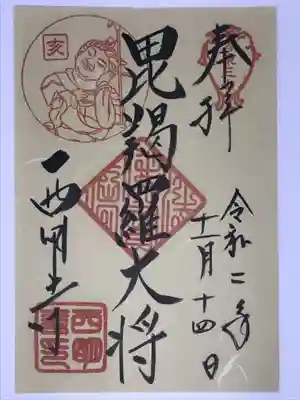 奉拝
令和二年
十二月十四日
毘羯羅大将
西明寺
亥
西明